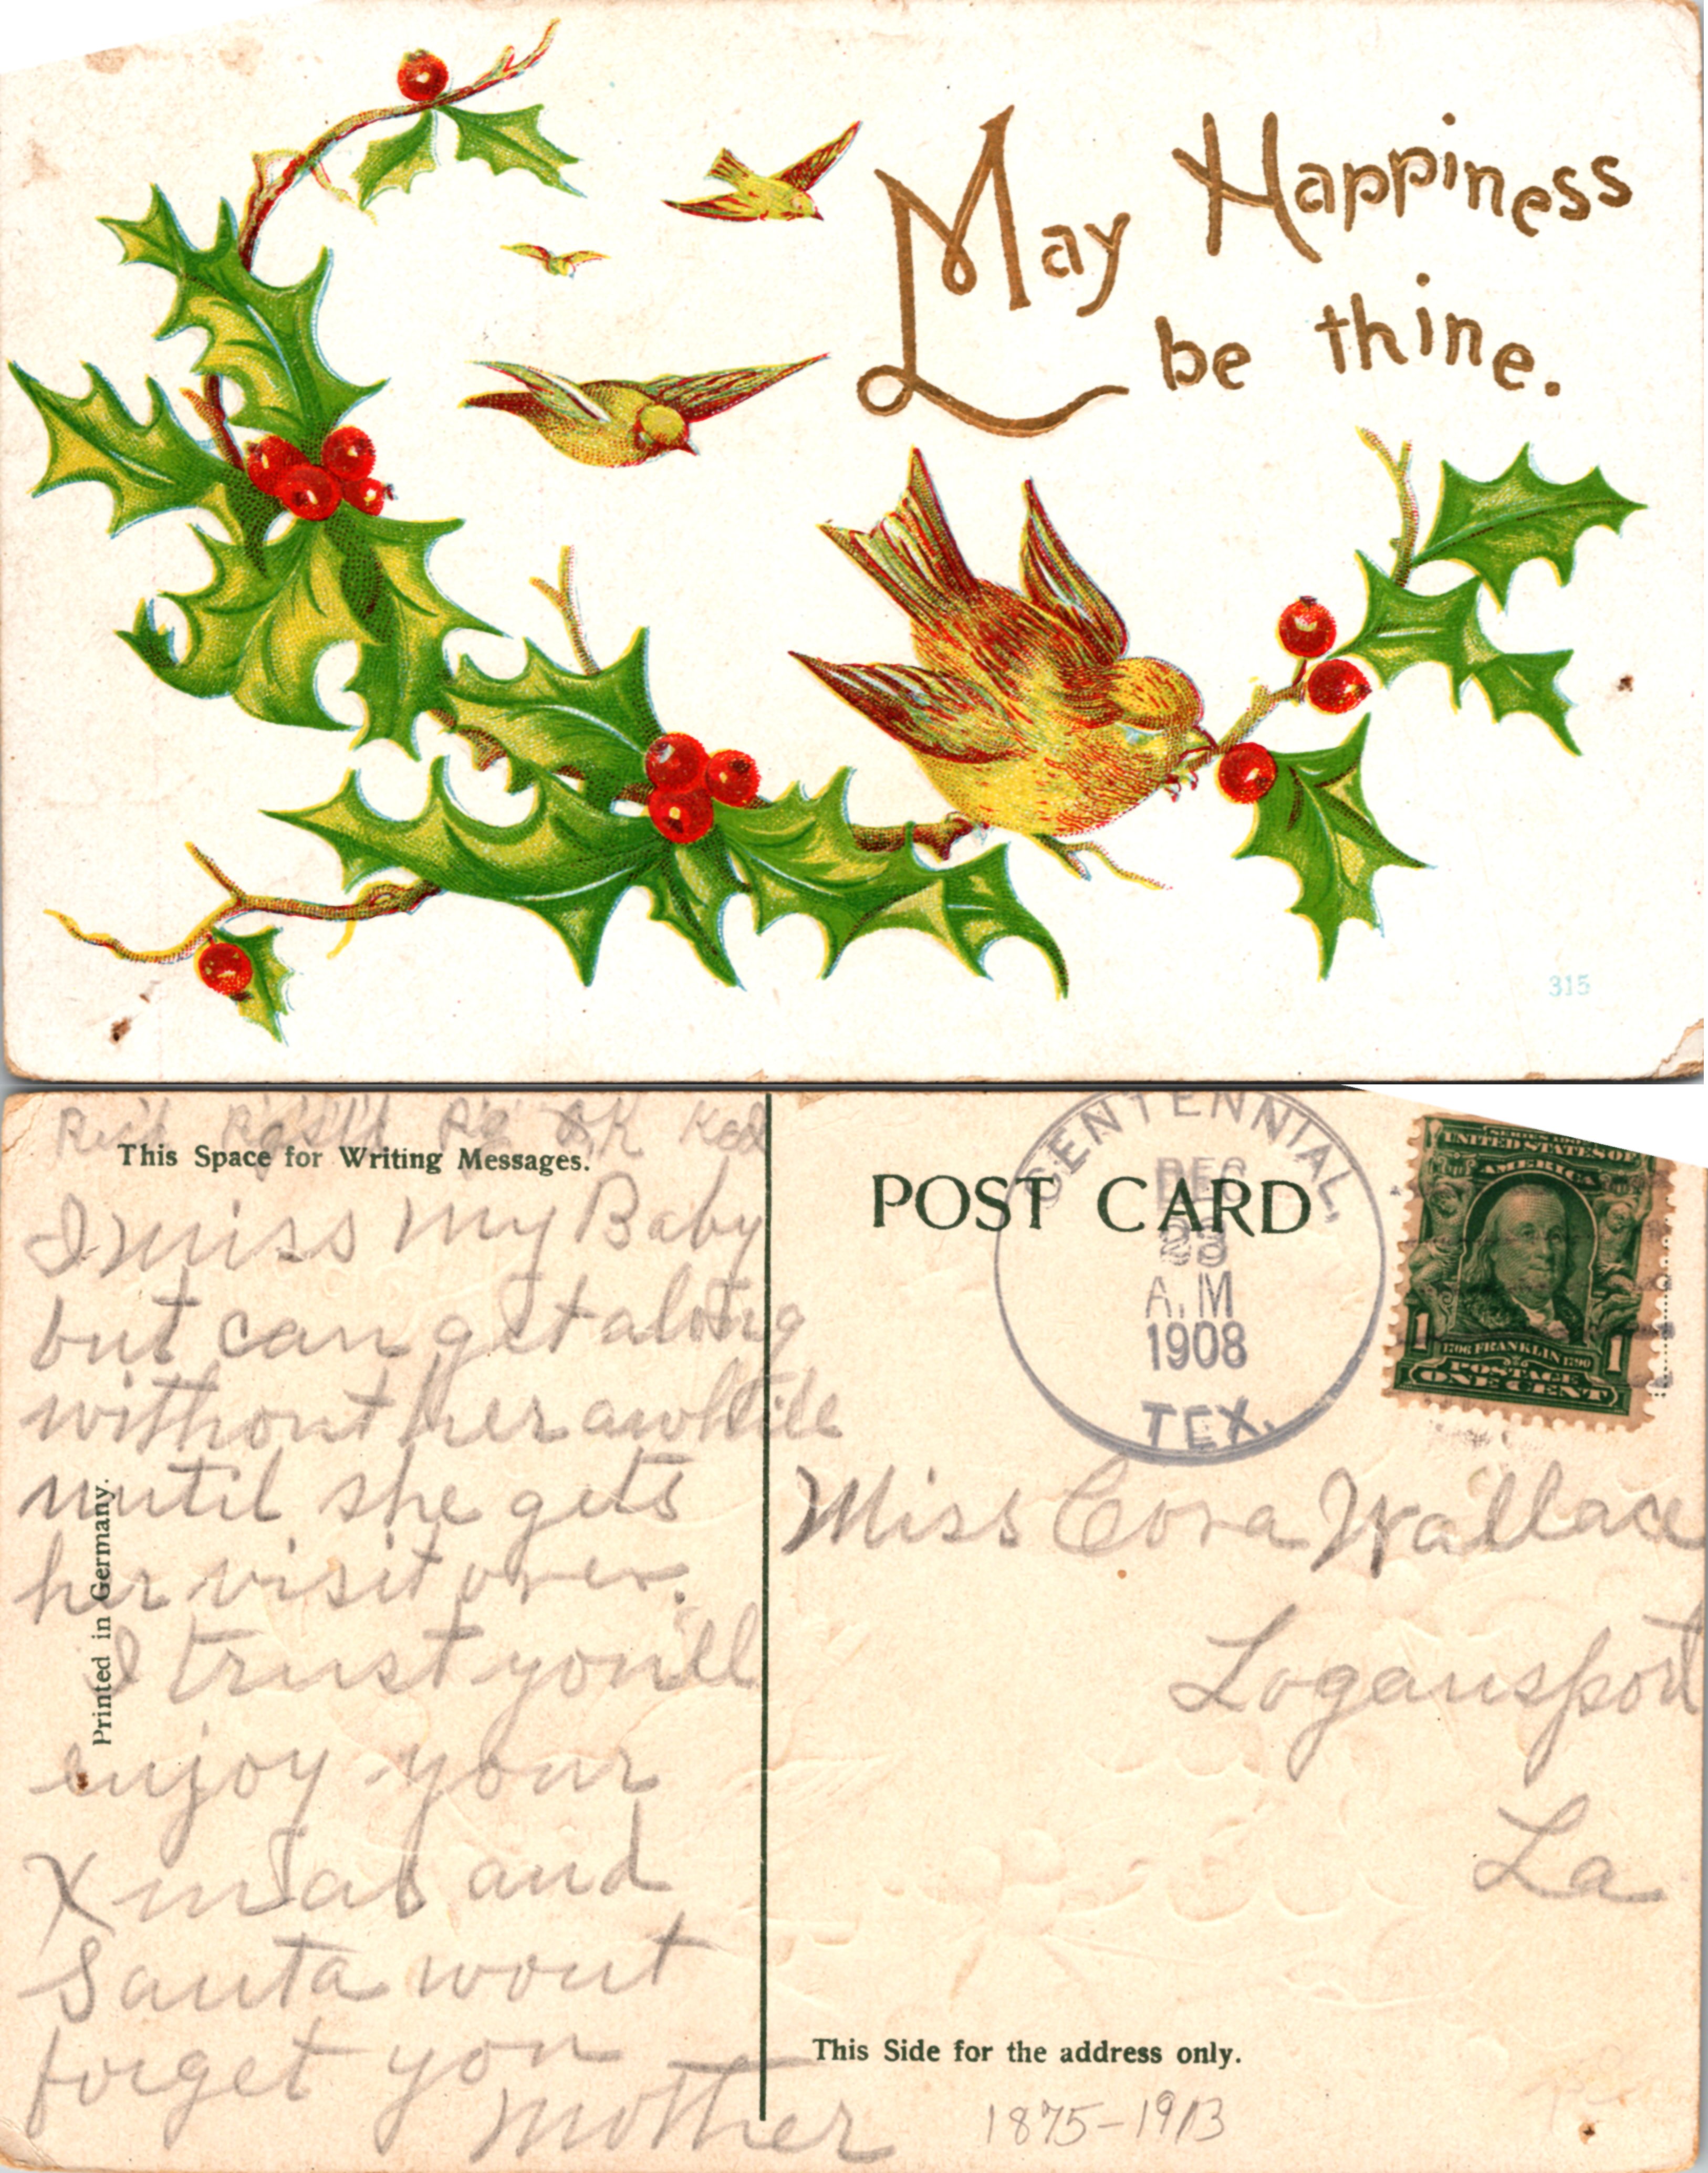 May Happiness
be thine.
315
This Space for Writing Messages.
I miss My Baby
but can get along
without her awhile
until she gets
her visit over.
I trust you'll
enjoy your
Xmas and
Santa wont
forget you
Mother
Printed in Germany.
POST CARD
CENTENNIAL,
DEC
23
A.M
1908
TEX.
UNITED STATES OF
AMERICA
1 1
1706 FRANKLIN 1790
POSTAGE
ONE CENT
Miss Cora Wallace
Logansport
La
This Side for the address only.
1875-1913